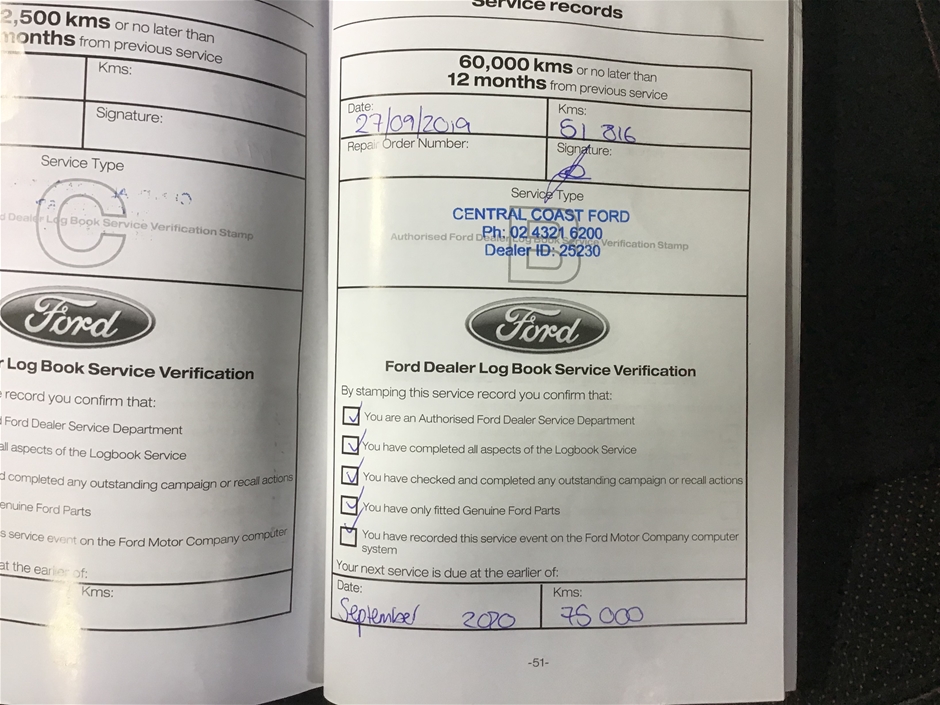 2,500 kms or no later than
months from previous service
Kms:
Signature:
Service Type
C
Dealer Log Book Service Verification Stamp
Ford
Log Book Service Verification
record you confirm that:
Ford Dealer Service Department
all aspects of the Logbook Service
completed any outstanding campaign or recall actions
Genuine Ford Parts
service event on the Ford Motor Company computer
at the earlier of:
Kms:
Service records
60,000 kms or no later than
12 months from previous service
Date:
27/09/2019
Kms:
51 816
Repair Order Number:
Signature:
Service Type
B
CENTRAL COAST FORD
Ph: 02 4321 6200
Authorised Ford Dealer Log Book Service Verification Stamp
Dealer ID: 25230
Ford
Ford Dealer Log Book Service Verification
By stamping this service record you confirm that:
You are an Authorised Ford Dealer Service Department
You have completed all aspects of the Logbook Service
You have checked and completed any outstanding campaign or recall actions
You have only fitted Genuine Ford Parts
You have recorded this service event on the Ford Motor Company computer
system
Your next service is due at the earlier of:
Date:
September 2020
Kms:
75 000
-51-